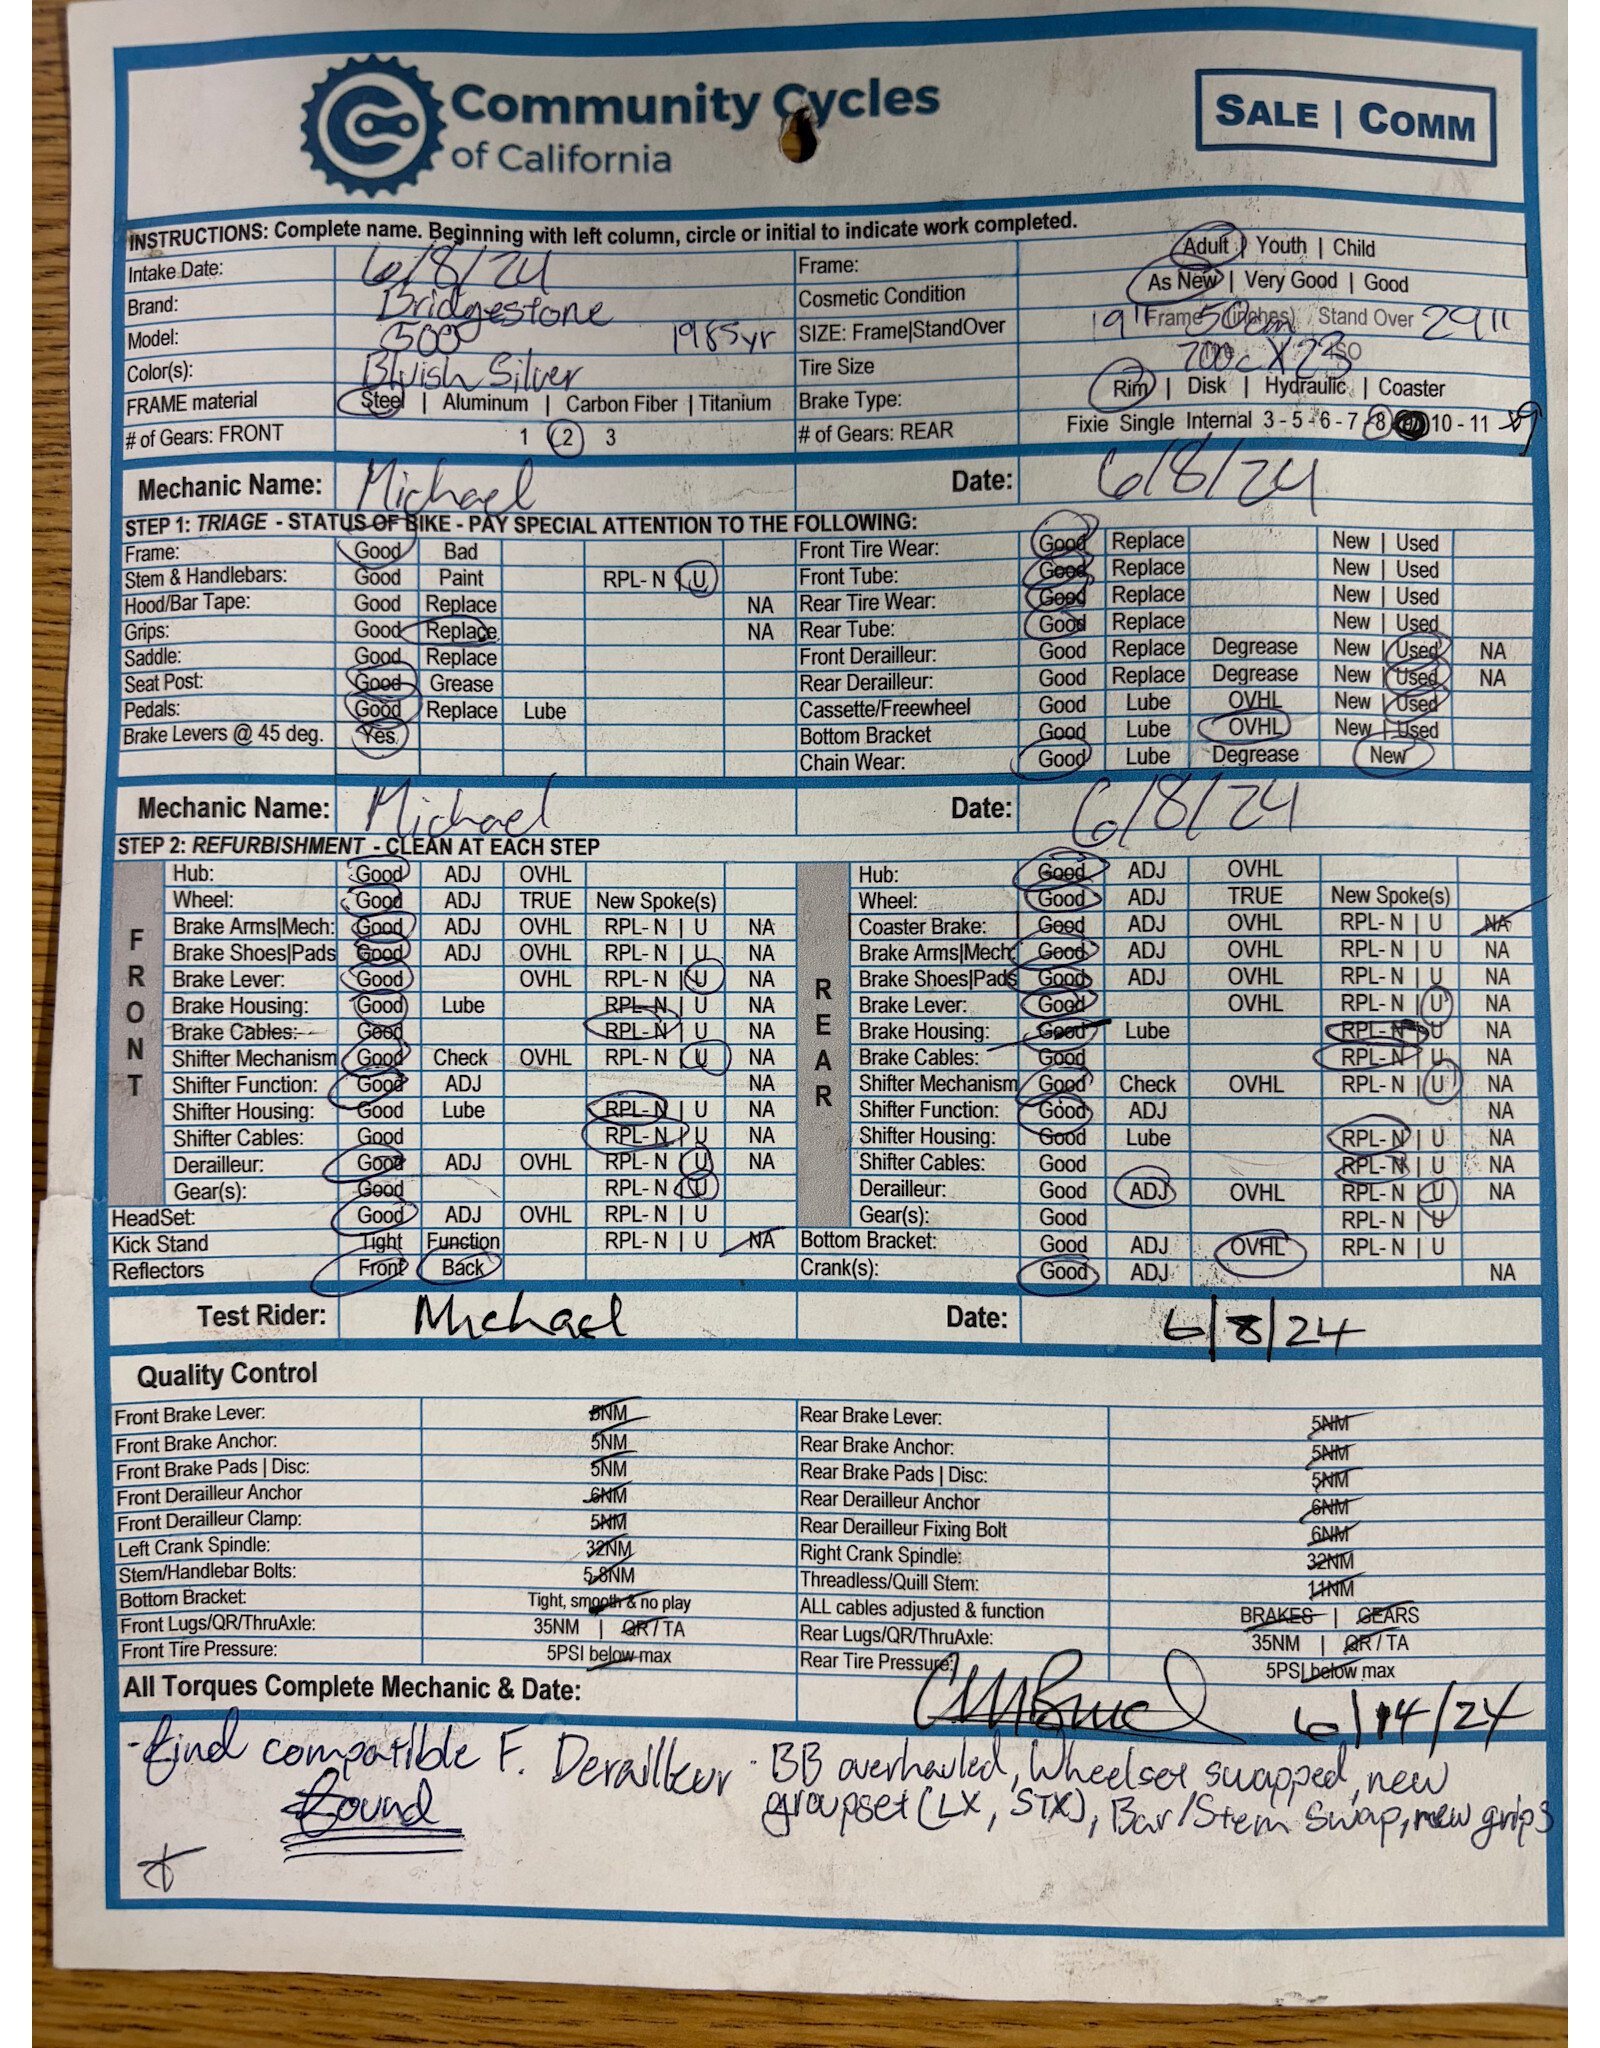 Community Cycles
of California
SALE | COMM
INSTRUCTIONS: Complete name. Beginning with left column, circle or initial to indicate work completed.
Intake Date: 6/8/24 Frame: Adult | Youth | Child
Brand: Bridgestone Cosmetic Condition As New | Very Good | Good
Model: 500 1985yr SIZE: Frame|StandOver 19" Frame 50cm (inches) Stand Over 29"
Color(s): Bluish Silver Tire Size 700c X 23 ISO
FRAME material Steel | Aluminum | Carbon Fiber | Titanium Brake Type: Rim | Disk | Hydraulic | Coaster
# of Gears: FRONT 1 2 3 # of Gears: REAR Fixie Single Internal 3 - 5 - 6 - 7 - 8 10 - 11
Mechanic Name: Michael Date: 6/8/24
STEP 1: TRIAGE - STATUS OF BIKE - PAY SPECIAL ATTENTION TO THE FOLLOWING:
Frame: Good Bad Front Tire Wear: Good Replace New | Used
Stem & Handlebars: Good Paint RPL- N | U Front Tube: Good Replace New | Used
Hood/Bar Tape: Good Replace NA Rear Tire Wear: Good Replace New | Used
Grips: Good Replace NA Rear Tube: Good Replace New | Used
Saddle: Good Replace Front Derailleur: Good Replace Degrease New | Used NA
Seat Post: Good Grease Rear Derailleur: Good Replace Degrease New | Used NA
Pedals: Good Replace Lube Cassette/Freewheel Good Lube OVHL New | Used
Brake Levers @ 45 deg. Yes Bottom Bracket Good Lube OVHL New | Used
Chain Wear: Good Lube Degrease New
Mechanic Name: Michael Date: 6/8/24
STEP 2: REFURBISHMENT - CLEAN AT EACH STEP
FRONT
Hub: Good ADJ OVHL
Wheel: Good ADJ TRUE New Spoke(s)
Brake Arms|Mech: Good ADJ OVHL RPL- N | U NA
Brake Shoes|Pads Good ADJ OVHL RPL- N | U NA
Brake Lever: Good OVHL RPL- N | U NA
Brake Housing: Good Lube RPL- N | U NA
Brake Cables: Good RPL- N | U NA
Shifter Mechanism Good Check OVHL RPL- N | U NA
Shifter Function: Good ADJ NA
Shifter Housing: Good Lube RPL- N | U NA
Shifter Cables: Good RPL- N | U NA
Derailleur: Good ADJ OVHL RPL- N | U NA
Gear(s): Good RPL- N | U
HeadSet: Good ADJ OVHL RPL- N | U
Kick Stand Tight Function RPL- N | U NA
Reflectors Front Back
REAR
Hub: Good ADJ OVHL
Wheel: Good ADJ TRUE New Spoke(s)
Coaster Brake: Good ADJ OVHL RPL- N | U NA
Brake Arms|Mech: Good ADJ OVHL RPL- N | U NA
Brake Shoes|Pads Good ADJ OVHL RPL- N | U NA
Brake Lever: Good OVHL RPL- N | U NA
Brake Housing: Good Lube RPL- N | U NA
Brake Cables: Good RPL- N | U NA
Shifter Mechanism Good Check OVHL RPL- N | U NA
Shifter Function: Good ADJ NA
Shifter Housing: Good Lube RPL- N | U NA
Shifter Cables: Good RPL- N | U NA
Derailleur: Good ADJ OVHL RPL- N | U NA
Gear(s): Good RPL- N | U
Bottom Bracket: Good ADJ OVHL RPL- N | U
Crank(s): Good ADJ NA
Test Rider: Michael Date: 6/8/24
Quality Control
Front Brake Lever: 5NM Rear Brake Lever: 5NM
Front Brake Anchor: 5NM Rear Brake Anchor: 5NM
Front Brake Pads | Disc: 5NM Rear Brake Pads | Disc: 5NM
Front Derailleur Anchor 6NM Rear Derailleur Anchor 6NM
Front Derailleur Clamp: 5NM Rear Derailleur Fixing Bolt 6NM
Left Crank Spindle: 32NM Right Crank Spindle: 32NM
Stem/Handlebar Bolts: 5-8NM Threadless/Quill Stem: 11NM
Bottom Bracket: Tight, smooth & no play ALL cables adjusted & function BRAKES | GEARS
Front Lugs/QR/ThruAxle: 35NM | QR / TA Rear Lugs/QR/ThruAxle: 35NM | QR / TA
Front Tire Pressure: 5PSI below max Rear Tire Pressure: 5PSI below max
All Torques Complete Mechanic & Date: 6/14/24
- find compatible F. Derailleur
found
- BB overhauled, Wheelset swapped, new
groupset (LX, STX), Bar/Stem swap, new grips